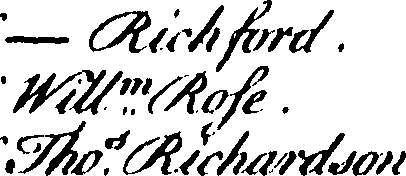 — Richford.
Will.ᵐ Roſe.
Tho.ˢ Richardson